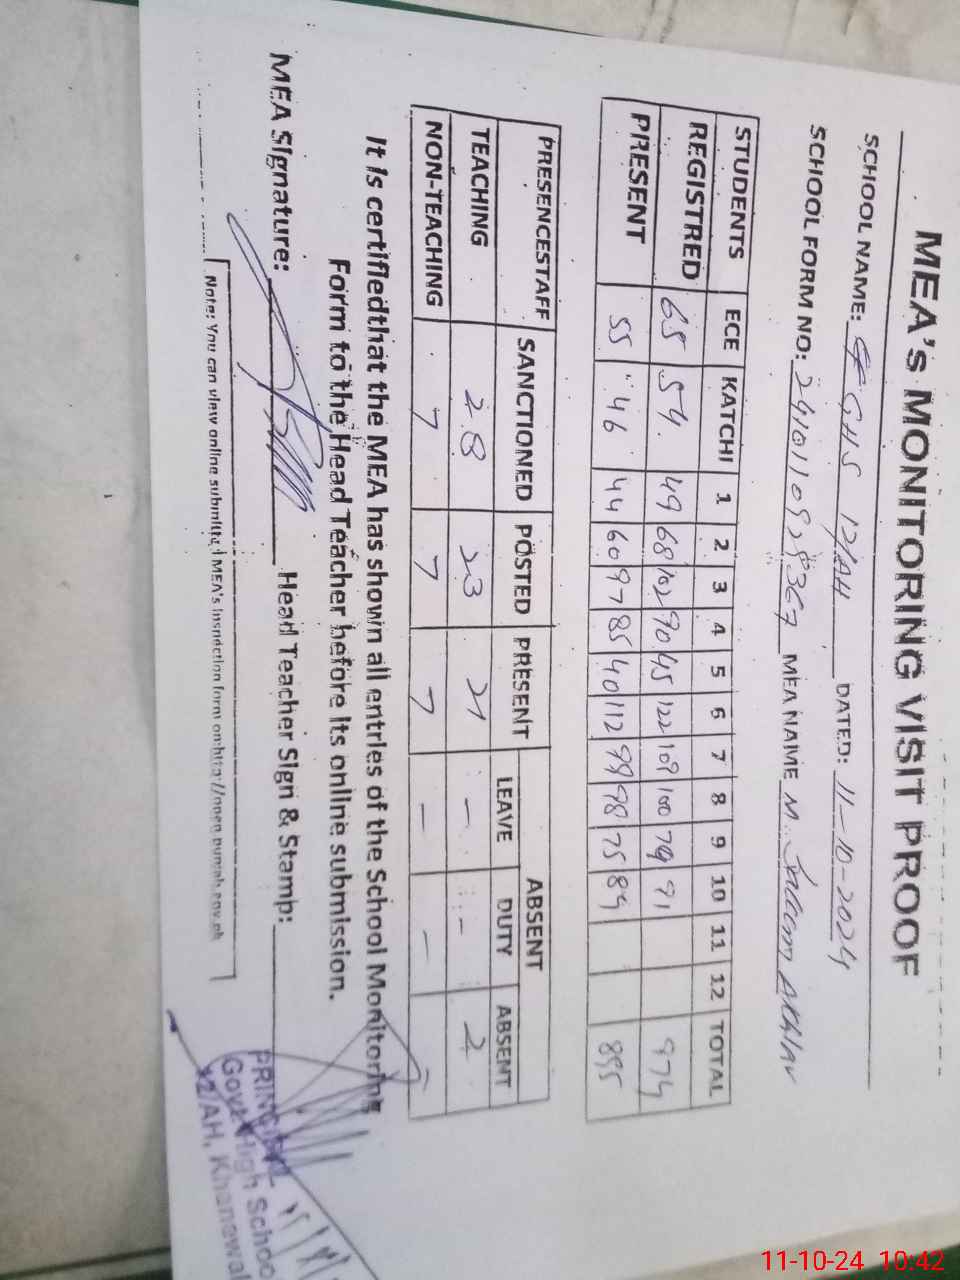 MEA's MONITORING VISIT PROOF
SCHOOL NAME: GHS 12/AH DATED: 11-10-2024
SCHOOL FORM NO: MEA NAME M. Saleem Akhtar
STUDENTS ECE KATCHI 1 2 3 4 5 6 7 8 9 10 11 12 TOTAL
REGISTRED 65 54 49 68 102 90 45 122 109 100 79 91 974
PRESENT 55 46 44 60 97 85 40 112 99 98 75 84 895
PRESENCESTAFF SANCTIONED POSTED PRESENT ABSENT
LEAVE DUTY ABSENT
TEACHING 28 23 21 - - 2
NON-TEACHING 7 7 7 - - -
It is certifiedthat the MEA has shown all entries of the School Monitoring
Form to the Head Teacher before its online submission.
MEA Signature: Head Teacher Sign & Stamp:
PRINCIPAL
Govt. High School
12/AH, Khanewal
Note: You can view online submitted MEA's Inspection form on:http://open.punjab.gov.pk
11-10-24 10:42